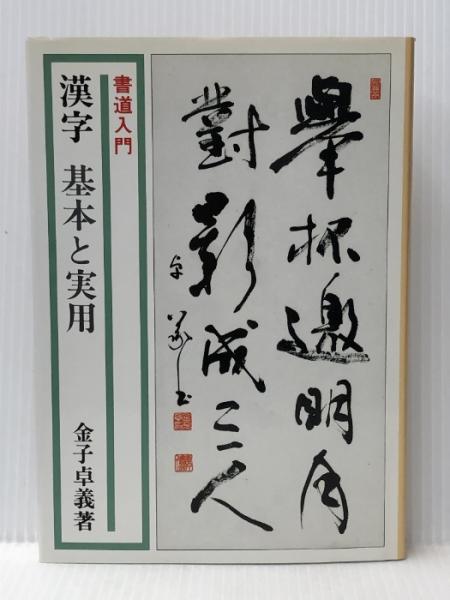 書道入門
漢字 基本と実用
金子卓義著
擧杯邀明月
對影成三人
卓義書